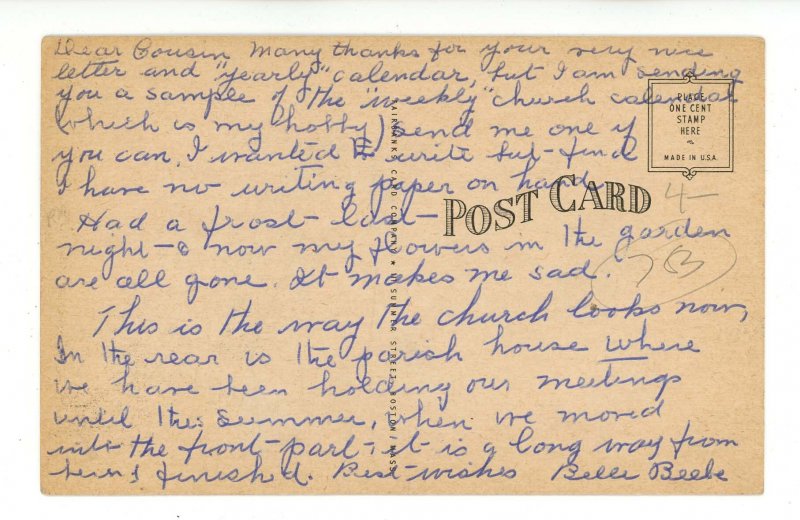 Dear Cousin Many thanks for your very nice
letter and "yearly" calendar, but I am sending
you a sample of the "weekly" church calendar
(which is my hobby) Send me one if
you can, I wanted to write but find
I have no writing paper on hand.
Had a frost last
night & now my flowers in the garden
are all gone. It makes me sad.
This is the way the church looks now,
In the rear is the parish house where
we have been holding our meetings
until the summer, when we moved
into the front part, it is a long way from
being finished. Best wishes Belle Beebe
PLACE
ONE CENT
STAMP
HERE
MADE IN U.S.A.
POST CARD
4-
73
FAIRBANKS CARD COMPANY * SUMMER STREET, BOSTON, MASS